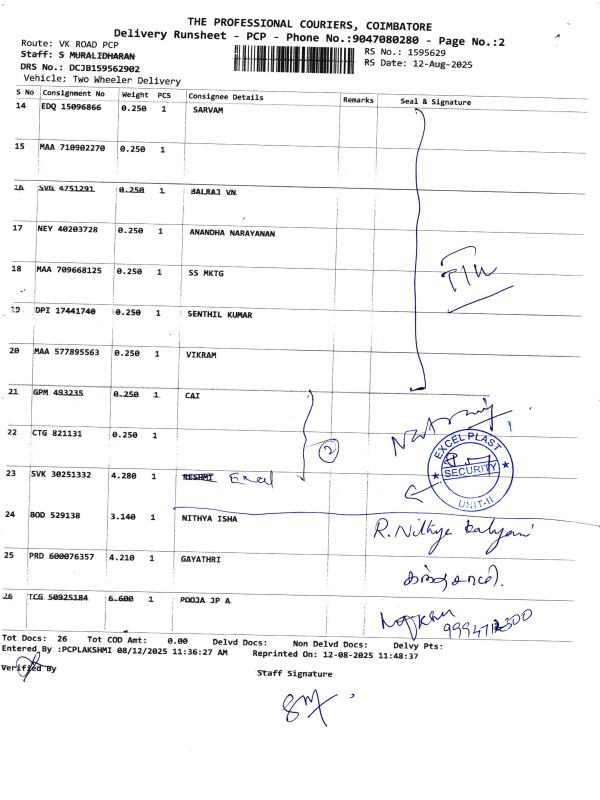 THE PROFESSIONAL COURIERS, COIMBATORE
Delivery Runsheet - PCP - Phone No.:9047080280 - Page No.:2
Route: VK ROAD PCP
RS No.: 1595629
Staff: S MURALIDHARAN
RS Date: 12-Aug-2025
DRS No.: DCJB159562902
Vehicle: Two Wheeler Delivery
S No Consignment No Weight PCS Consignee Details Remarks Seal & Signature
14 EDQ 15096866 0.250 1 SARVAM
15 MAA 710902270 0.250 1
16 SVG 4751291 0.250 1 BALRAJ VN
17 NEY 40203728 0.250 1 ANANDHA NARAYANAN
18 MAA 709668125 0.250 1 SS MKTG
19 DPI 17441740 0.250 1 SENTHIL KUMAR
20 MAA 577895563 0.250 1 VIKRAM
21 GPM 493235 0.250 1 CAI
22 CTG 821131 0.250 1
2
EXCEL PLAST
SECURITY
UNIT-II
23 SVK 30251332 4.280 1 RESHMI Excel
24 BOD 529138 3.140 1 NITHYA ISHA
R. Nithya Kalyani
25 PRD 600076357 4.210 1 GAYATHRI
26 TCG 50925184 6.600 1 POOJA JP A
Tot Docs: 26 Tot COD Amt: 0.00 Delvd Docs: Non Delvd Docs: Delvy Pts:
Entered By :PCPLAKSHMI 08/12/2025 11:36:27 AM Reprinted On: 12-08-2025 11:48:37
Verified By
Staff Signature